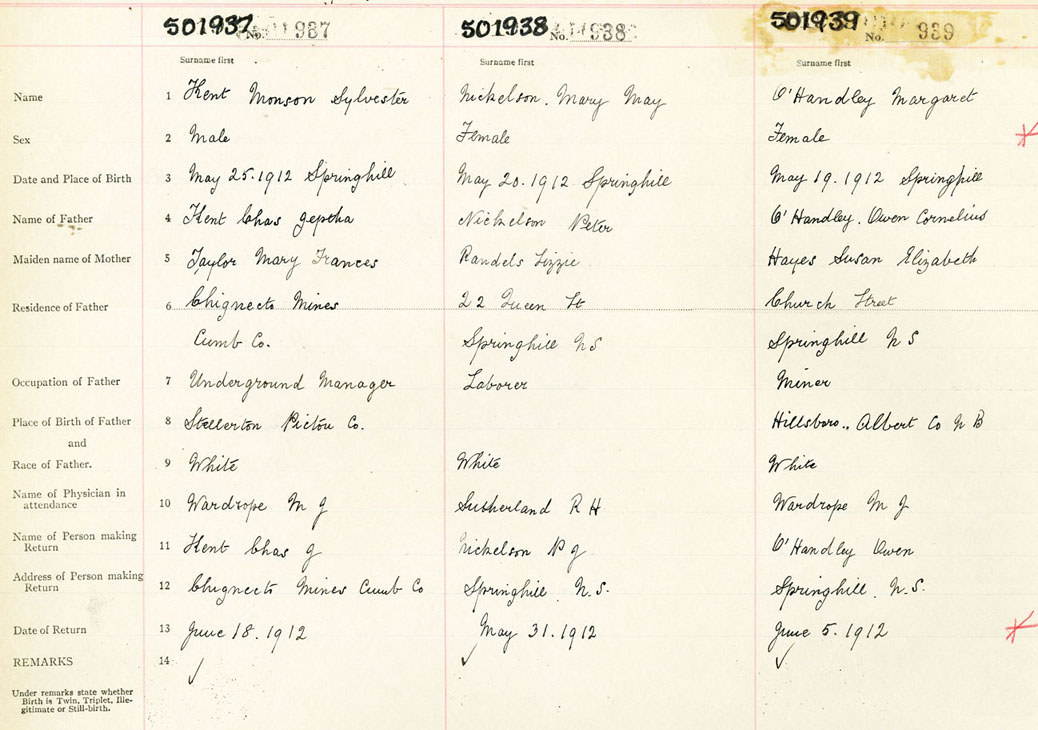 501937 No. 937 501938 No. 938 501939 No. 939
Surname first Surname first Surname first
Name 1 Kent Monson Sylvester Nickelson. Mary May O'Handley Margaret
Sex 2 Male Female Female
Date and Place of Birth 3 May 25.1912 Springhill May 20.1912 Springhill May 19.1912 Springhill
Name of Father 4 Kent Chas Geptha Nickelson Peter O'Handley. Owen Cornelius
Maiden name of Mother 5 Taylor Mary Frances Randels Lizzie Hayes Susan Elizabeth
Residence of Father 6 Chignecto Mines 22 Queen St Church Street
Cumb Co. Springhill N S Springhill N S
Occupation of Father 7 Underground Manager Laborer Miner
Place of Birth of Father 8 Stellerton Pictou Co. Hillsboro., Albert Co N B
and
Race of Father. 9 White White White
Name of Physician in
attendance 10 Wardrope M J Sutherland R H Wardrope M J
Name of Person making
Return 11 Kent Chas G Nickelson P J O'Handley Owen
Address of Person making
Return 12 Chignecto Mines Cumb Co Springhill N.S. Springhill. N.S.
Date of Return 13 June 18.1912 May 31.1912 June 5.1912
REMARKS 14
Under remarks state whether
Birth is Twin, Triplet, Ille-
gitimate or Still-birth.